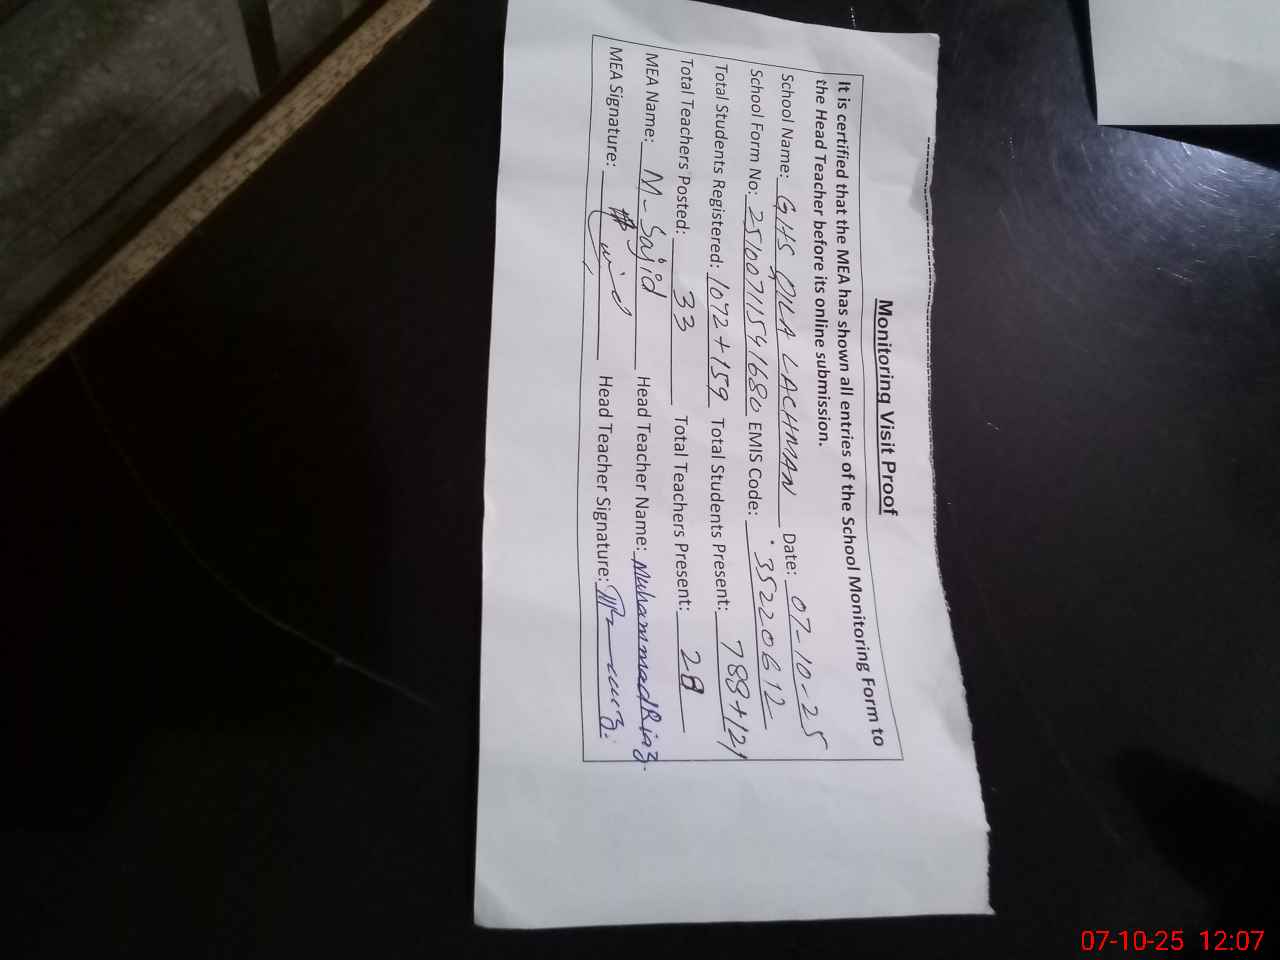 Monitoring Visit Proof
It is certified that the MEA has shown all entries of the School Monitoring Form to
the Head Teacher before its online submission.
School Name: GHS QILA LACHMAN Date: 07-10-25
School Form No: 251007115941680 EMIS Code: 35220612
Total Students Registered: 1072+159 Total Students Present: 788+121
Total Teachers Posted: 33 Total Teachers Present: 28
MEA Name: M-Sajid Head Teacher Name: Muhammad Riaz.
MEA Signature: Head Teacher Signature:
07-10-25 12:07